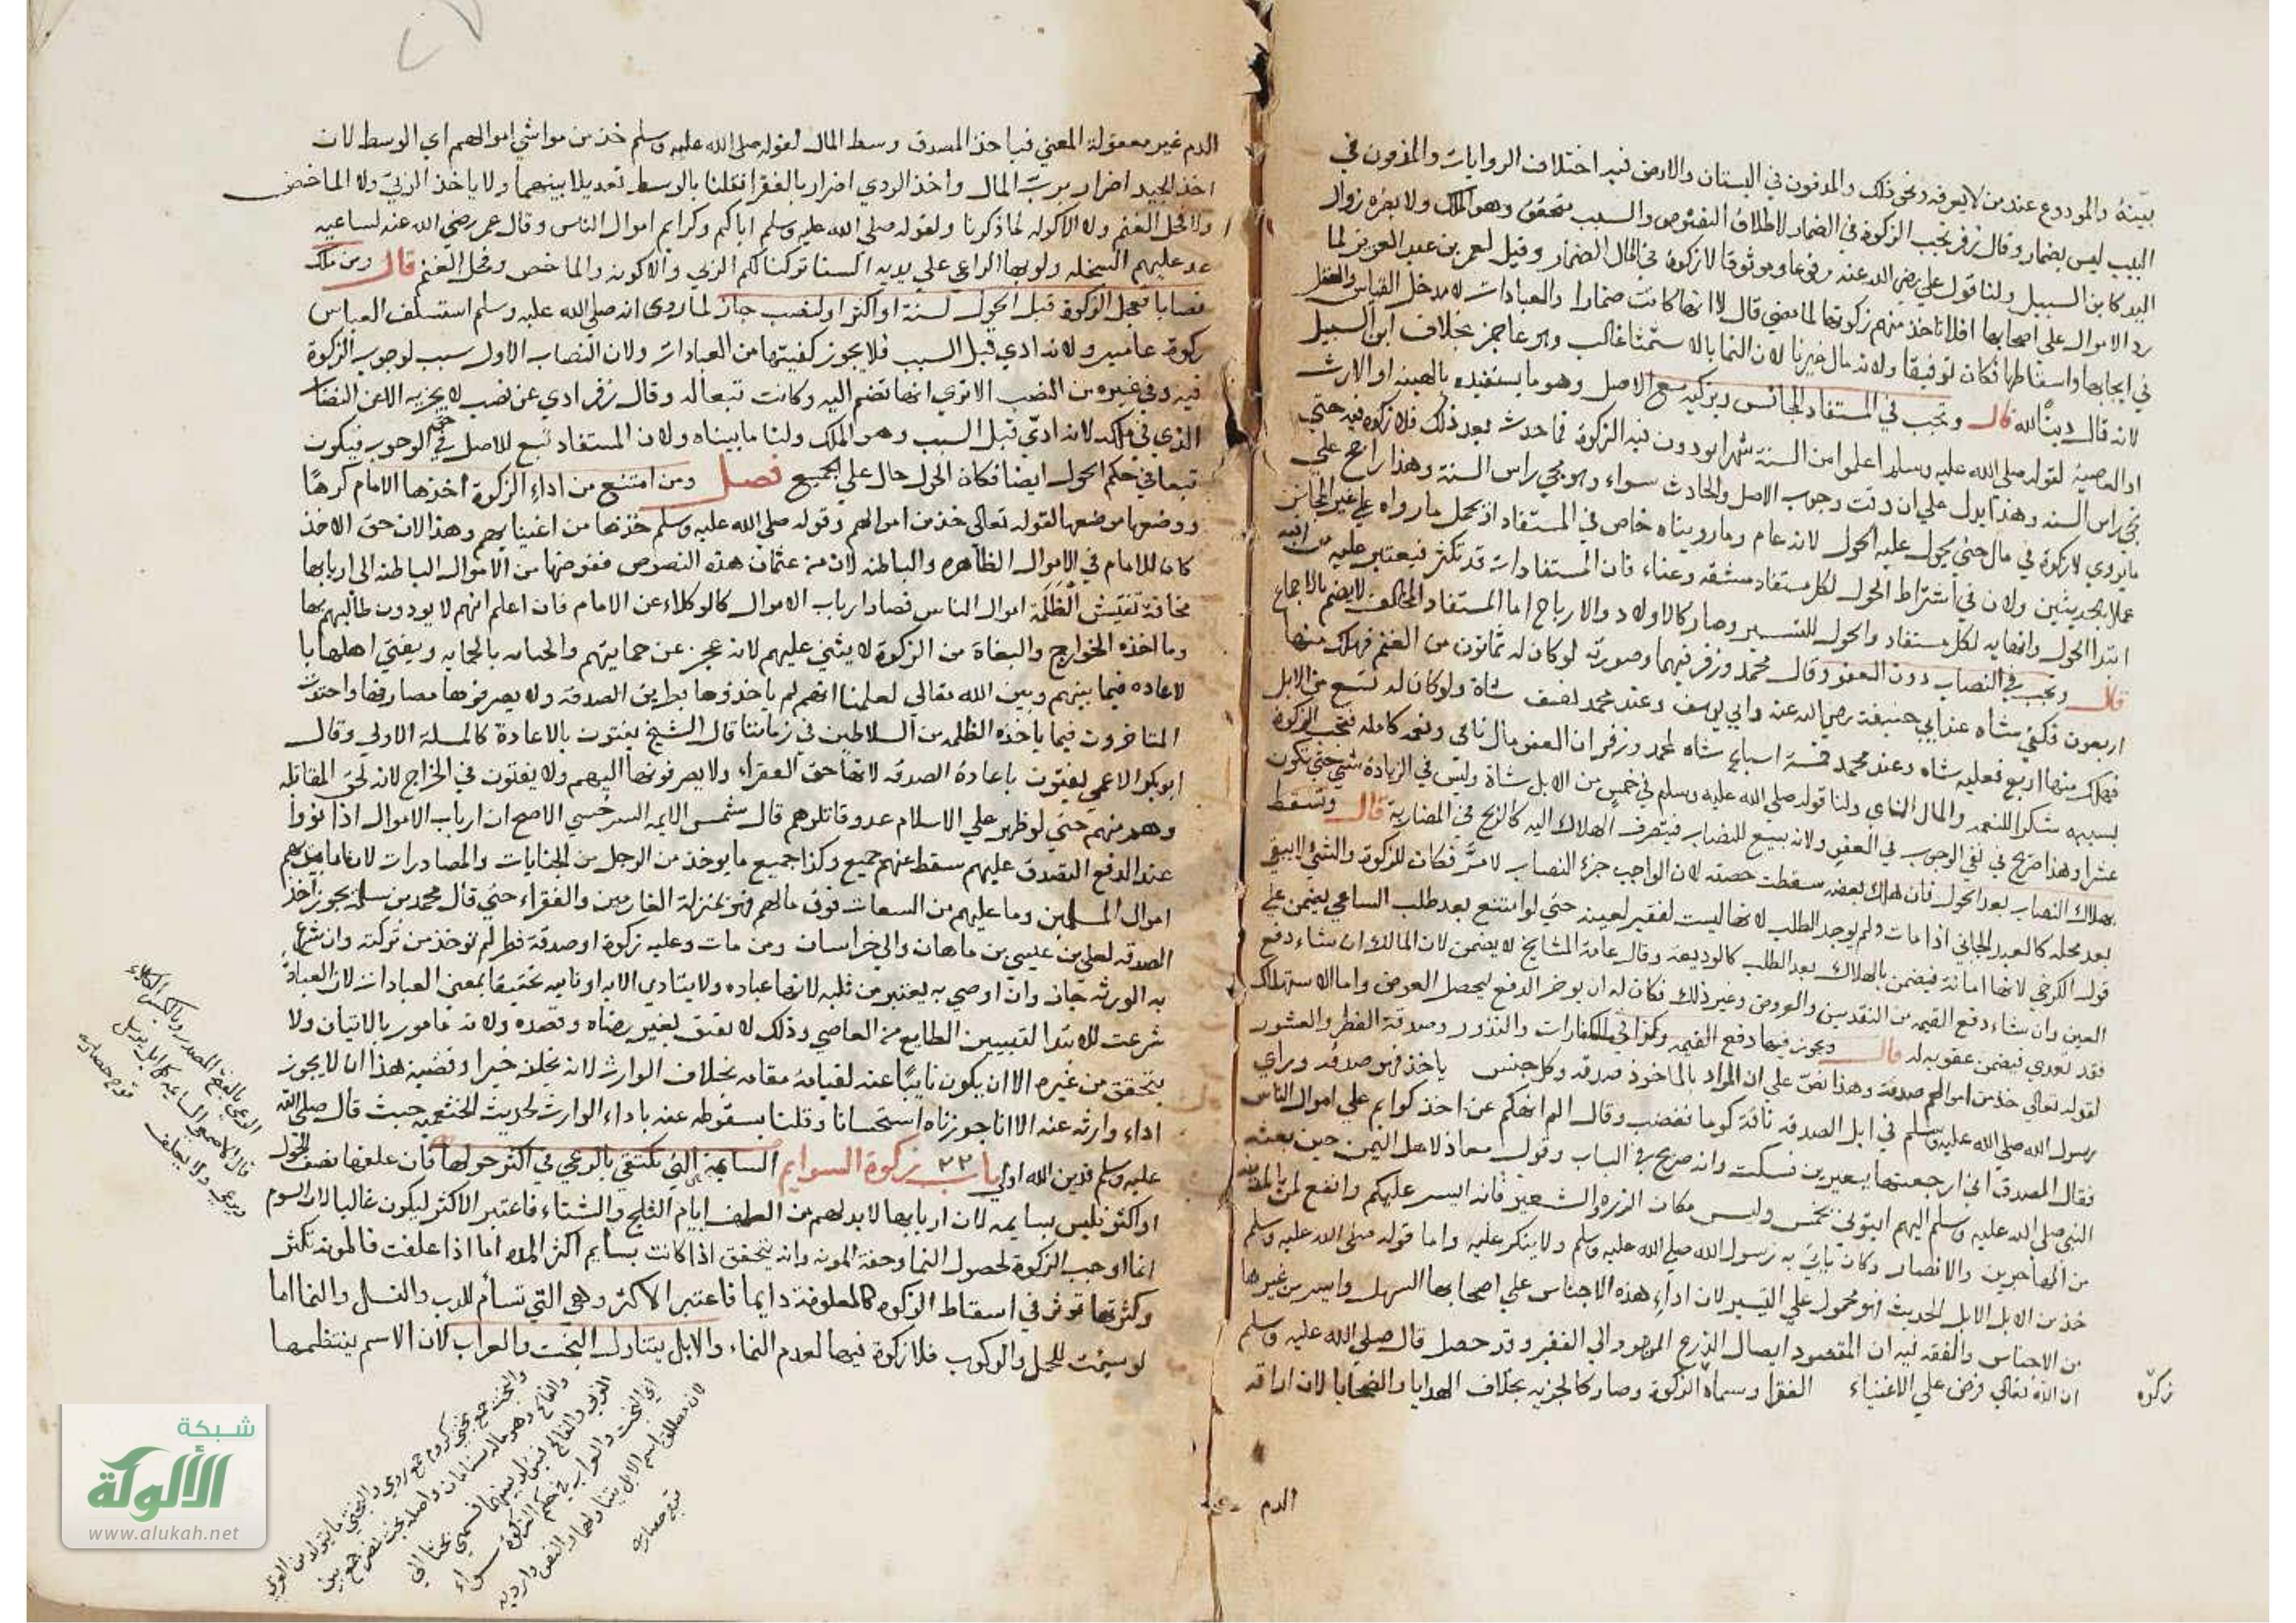 بيّنة والمودوع عند من لا يعرفه ونحو ذلك والمدفون في البستان والارض فيه اختلاف الروايات والمدفون في
البيت ليس بضمار وقال زفر تجب الزكوة في الضمار لاطلاق النصوص والسبب متحقق وهو الملك ولا يضره زوال
اليد كابن السبيل ولنا قول علي رضي الله عنه مرفوعا وموثوقا لا زكوة في المال الضمار وقيل لعمر بن عبد العزيز لما
رد الاموال على اصحابها افلا ناخذ منهم زكوتها لما مضي قال لا انها كانت ضمارا والعبادات لا مدخل القياس والعقل
في ايجابها واسقاطها فكان توقيفا ولانه مال غير نام لان النما بالاستنما غالب وهو عاجز بخلاف ابن السبيل
لانه قال وتجب في المستفاد المجانس ويزكيه مع الاصل وهو ما يستفيده بالهبة او الارث
او الوصية لقوله صلي الله عليه وسلم اعلموا من السنة شهرا تودون فيه الزكوة فما حدث بعد ذلك فلا زكوة فيه حتي
يجي راس السنه وهذا يدل علي ان وقت وجوب الاصل والحادث سواء وهو مجي راس السنة وهذا راجح علي
ما يروي لا زكوة في مال حتي يحول عليه الحول لانه عام وما رويناه خاص في المستفاد او يحمل ما رواه علي غير المجانس
عملا بالحديثين ولان في اشتراط الحول لكل مستفاد مشقة وعناء فان المستفادات قد تكثر فيعتبر عليه
ابتدا الحول وانتهايه لكل مستفاد والحول للتيسير وصار كالاولاد والارباح اما المستفاد المخالف لا يضم بالاجماع
قال وتجب في النصاب دون العفو وقال محمد وزفر فيهما وصورته لو كان له ثمانون من الغنم فهلك منها
اربعون فكفي شاه عند ابي حنيفة رضي الله عنه وابي يوسف وعند محمد نصف شاة ولو كان له تسع من الابل
فهلك منها اربع فعليه شاه وعند محمد خمسة اسباع شاه لمحمد وزفر ان العفو مال نامي ونعمه كامله فتجب الزكوة
بسببه شكرا للنعمه والمال النامي ولنا قوله صلي الله عليه وسلم في خمس من الابل شاة وليس في الزيادة شئ حتي تكون
عشرا وهذا صريح في نفي الوجوب في العفو ولانه تبع للنصاب فيتصرف الهلاك اليه كالربح في المضاربة قال وتسقط
بهلاك النصاب بعد الحول فان هلك بعضه سقطت حصته لان الواجب جزء النصاب لما مرّ فكان للزكوة والشئ لا يبقي
بعد محله كالعبد الجاني اذا مات ولم يوجد الطلب لانها ليست لفقير بعينه حتي لو امتنع بعد طلب الساعي يضمن علي
قول الكرخي لانها امانة فيضمن بالهلاك بعد الطلب كالوديعة وقال عامة المشايخ لا يضمن لان المالك ان شاء دفع
العين وان شاء دفع القيمه من النقدين والعروض وغير ذلك فكان له ان يوخر الدفع ليحصل العوض واما الاستهلاك
فقد تعدي فيضمن عقوبه له قال ويجوز فيها دفع القيمه وكذا في الكفارات والنذور وصدقة الفطر والعشور
لقوله تعالي خذ من اموالهم صدقة وهذا نص علي ان المراد بالماخوذ صدقة وكل جنس ياخذ فهو صدقه وراي
رسول الله صلي الله عليه وسلم في ابل الصدقه ناقة كوما فغضب وقال الم انهكم عن اخذ كرايم علي اموال الناس
فقال المصدق اني ارتجعتها ببعيرين فسكت وانه صريح في الباب وقول معاذ لاهل اليمن حين بعثه
النبي صلي الله عليه وسلم اليهم ايتوني بخمس ولبيس مكان الذرة والشعير فانه ايسر عليكم وانفع لمن بالمدينه
من المهاجرين والانصار وكان ياتي به رسول الله صلي الله عليه وسلم ولا ينكر عليه واما قوله صلي الله عليه وسلم
خذ من الابل الابل الحديث فهو محمول علي التيسير لان اداء هذه الاجناس علي اصحابها اسهل وايسر من غيرها
من الاجناس والفقه فيه ان المقصود ايصال الرزق الموعود الي الفقير وقد حصل قال صلي الله عليه وسلم
ان الله تعالي فرض علي الاغنياء الفقرا وسماه الزكوة وصار كالجزيه بخلاف الهدايا والضحايا لان اراقه
زكوة
الدم
الدم غير معقولة المعني فياخذ المصدق وسط المال لقوله صلي الله عليه وسلم خذ من مواشي اموالهم اي الوسط لان
اخذ الجيد اضرار برب المال واخذ الردي اضرار بالفقرا فقلنا بالوسط تعديلا بينهما ولا ياخذ الربي ولا الماخض
ولا فحل الغنم ولا الاكوله لما ذكرنا ولقوله صلي الله عليه وسلم اياكم وكرايم اموال الناس وقال عمر رضي الله عنه لساعيه
عد عليهم السخله ولو جا بها الراعي علي يديه السنا تركنا لكم الربي والاكوله والماخض وفحل الغنم قال ومن ملك
نصابا فعجل الزكوة قبل الحول لسنة او اكثر او لنصب جاز لما روي انه صلي الله عليه وسلم استسلف العباس
زكوة عامين ولانه ادي قبل السبب فلا يجوز كغيرها من العبادات ولان النصاب الاول سبب لوجوب الزكوة
فيه وفي غيره من النصب الا تري انها تضم اليه وكانت تبعا له وقال زفر ادي عن نصب لا يجزيه الا عن النصاب
الذي في ملكه لانه ادي قبل السبب وهو الملك ولنا ما بيناه ولان المستفاد تبع للاصل في حكم الوجوب فيكون
تبعا في حكم الحول ايضا فكان الحول حال علي الجميع فصل ومن امتنع من اداء الزكوة اخذها الامام كرها
ووضعها موضعها لقوله تعالي خذ من اموالهم وقوله صلي الله عليه وسلم خذها من اغنيايهم وهذا لان حق الاخذ
كان للامام في الاموال الظاهره والباطنه لان من عثمان هذه النصوص ففوضها من الاموال الباطنه الي اربابها
مخافة تفتيش الظلمة اموال الناس فصار ارباب الاموال كالوكلاء عن الامام فان اعلم انهم لا يودون طالبهم بها
وما اخذه الخوارج والبغاة من الزكوة لا يثني عليهم لانه عجز عن حمايتهم والجبايه بالحمايه ويفتي اهلها با
لاعاده فيما بينهم وبين الله تعالي لعلمنا انهم لم ياخذوها بطريق الصدقه ولا يصرفوها مصارفها واختلف
المتاخرون فيما ياخذه الظلمه من السلاطين في زماننا قال الشيخ يفتون بالاعادة كالمسلة الاولي وقال
ابو بكر الاعمي يفتون باعادة الصدقه لانها حق الفقراء ولا يصرفونها اليهم ولا يفتون في الخراج لانه لحق المقاتله
وهم منهم حتي لو ظهر علي الاسلام عدو قاتلوهم قال شمس الايمه السرخسي الاصح ان ارباب الاموال اذا نووا
عند الدفع التصدق عليهم سقط عنهم جميع وكذا جميع ما يوخذ من الرجل من الجنايات والمصادرات لان ما بايديهم
اموال المسلمين وما عليهم من التبعات فوق مالهم فهو بمنزلة الغارمين والفقراء حتي قال محمد بن سلمة يجوز اخذ
الصدقه لعلي بن عيسي بن ماهان والي خراسان ومن مات وعليه زكوة او صدقة فطر لم توخذ من تركته وان تبرع
به الورثه جاز وان اوصي به يعتبر من ثلثه لانها عباده ولا يتادي الا به او نايبه تحقيقا بمعني العبادات لان العبادة
شرعت للابتدا لتبيين الطايع من العاصي وذلك لا يتحقق بغير رضاه وقصده ولانه مامور بالاتيان ولا
يتحقق من غيره الا ان يكون نايبا عنه لقيامه مقامه بخلاف الوارث لانه يخلفه خيرا وقضيه هذا ان لا يجوز
اداء وارثه عنه الا انا جوزناه استحسانا وقلنا بسقوطه عنه باداء الوارث لحديث الخثعميه حيث قال صلي الله
عليه وسلم فدين الله اولي باب ٢٢ زكوة السوايم السايمة التي تكتفي بالرعي في اكثر حولها فان علفها نصف الحول
او اكثر فليس بسايمه لان اربابها لابد لهم من العلف ايام الثلج والشتاء فاعتبر الاكثر ليكون غالبا لان السوم
انما اوجب الزكوة لحصول النما وخفة المونه وانه يتحقق اذا كانت بسايم اكثر المده اما اذا علفت فالمونه تكثر
وكثرتها توثر في اسقاط الزكوة كالمعلوفة دايما فاعتبر الاكثر وهي التي تسام للدر والنسل والنما اما
لو سيمت للحمل والركوب فلا زكوة فيها لعدم النماء والابل يتناول البخت والعراب لان الاسم ينتظمها
الرعي بالفتح المصدر وبالكسر الكلاء
والبخت جمع بختي كروم جمع رومي والبختي ما يتولد من العربي
والفالج وهو ماله سنامان
اي البخت والعراب في حكم الزكوة سواء
لان مطلق اسم الابل يتناولهما والنص وارد به
شبكة
الألوكة
www.alukah.net